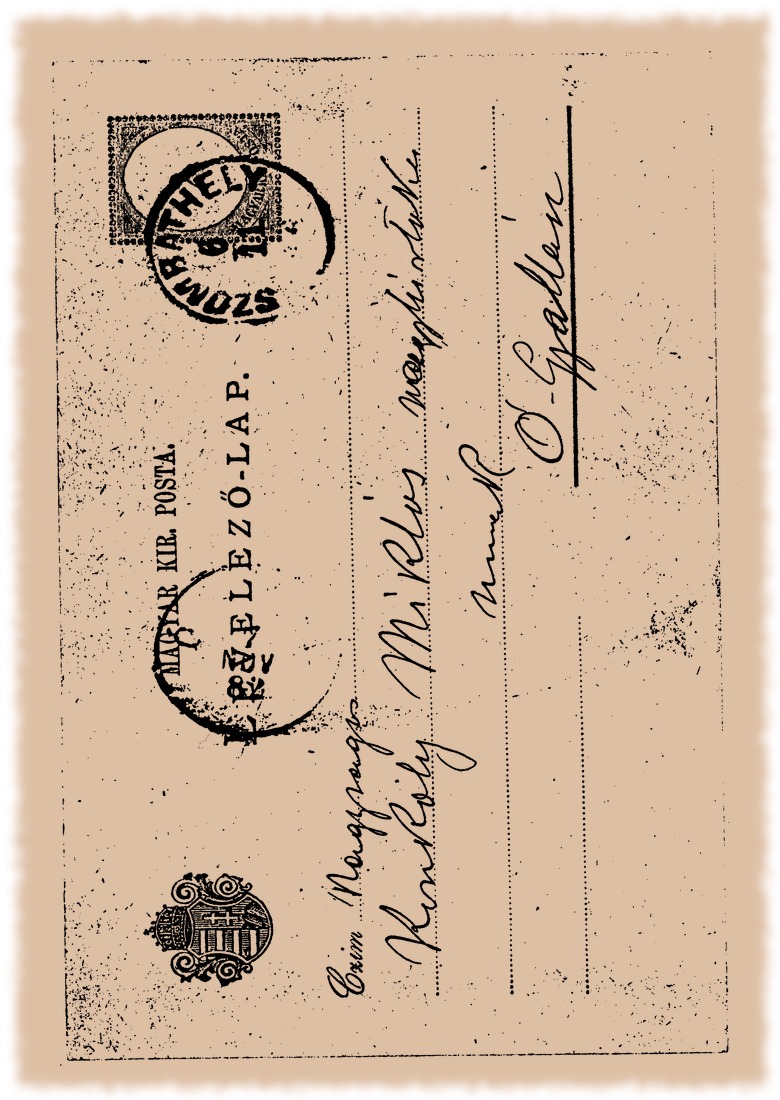 MAGYAR KIR. POSTA.
LEVELEZŐ-LAP.
SZOMBATHELY
6
11
Czim Nagyságos
Konkoly Miklós nagybirtokos
urnak
Ó-Gyallán